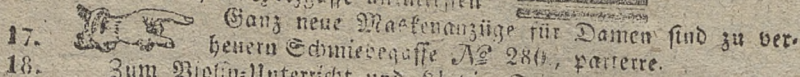 17. Ganz neue Maskenanzüge für Damen sind zu ver-
heuern Schmiedegasse No 280, parterre.
18. Zum Violin-Unterricht und